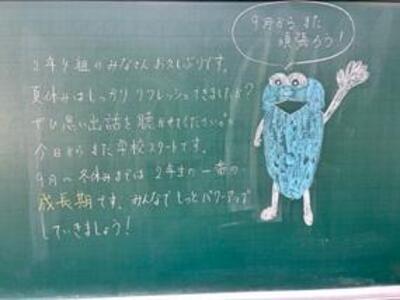 9月からまた
頑張ろう!
2年4組のみなさんお久しぶりです。
夏休みはしっかりリフレッシュできましたか?
ぜひ思い出話を聴かせてくださいね。
今日からまた学校スタートです。
9月〜冬休みまでは2年生の一番の
成長期です。みんなでもっとパワーアップ
していきましょう!